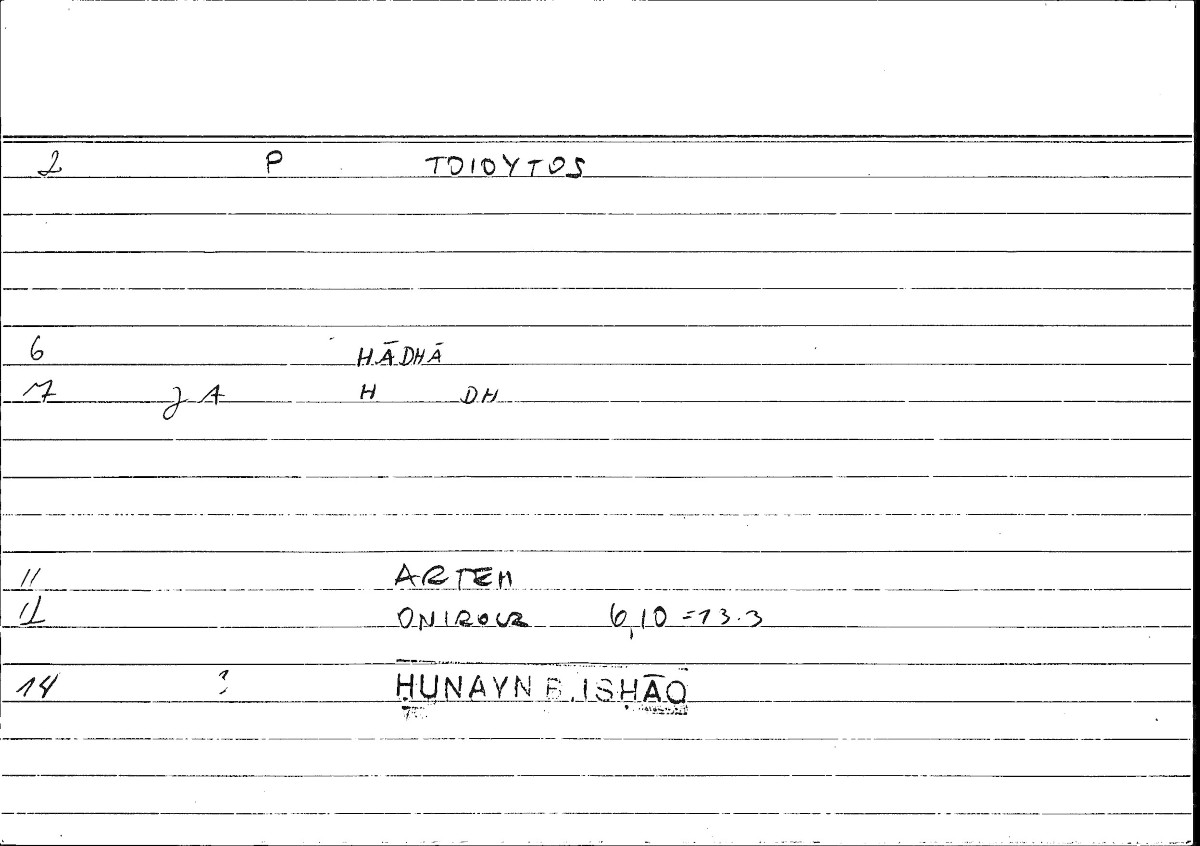 2 P TOIOYTOS
6 HĀDHĀ
7 J A H DH
11 ARTEM
12 ONIROCR 6,10 = 13.3
14 ? ḤUNAYN B. ISḤĀQ